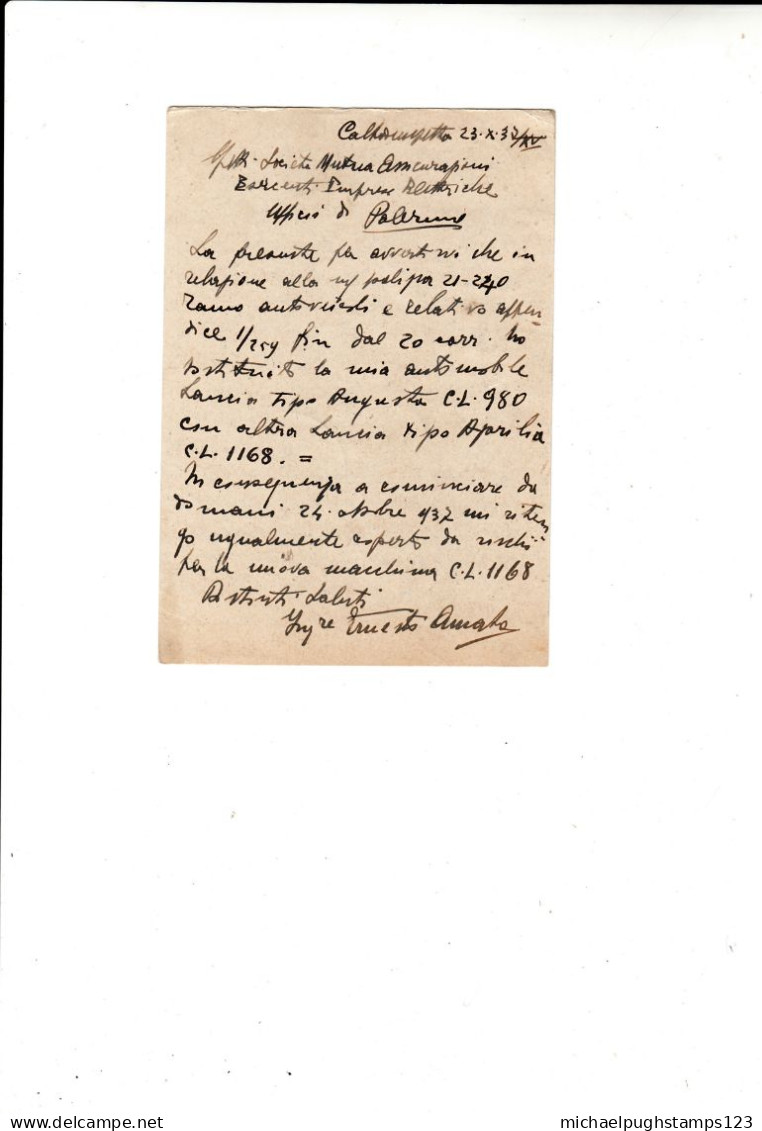 Caltanissetta 23.X.37/XV
Spett. Società Mutua Assicurazioni
Esercenti Imprese Elettriche
Uffici di Palermo
La presente per avvertirvi che in
relazione alla polizza 21-240
ramo autoveicoli e relativa appen-
dice 1/259 fin dal 20 corr. ho
sostituito la mia automobile
Lancia tipo Augusta C.L. 980
con altra Lancia tipo Aprilia
C.L. 1168. =
In conseguenza a cominciare da
domani 24 ottobre 937 mi riten
go ugualmente coperto da rischi
per la nuova macchina C.L. 1168
Distinti Saluti
Ing.re Ernesto Amato
michaelpughstamps123